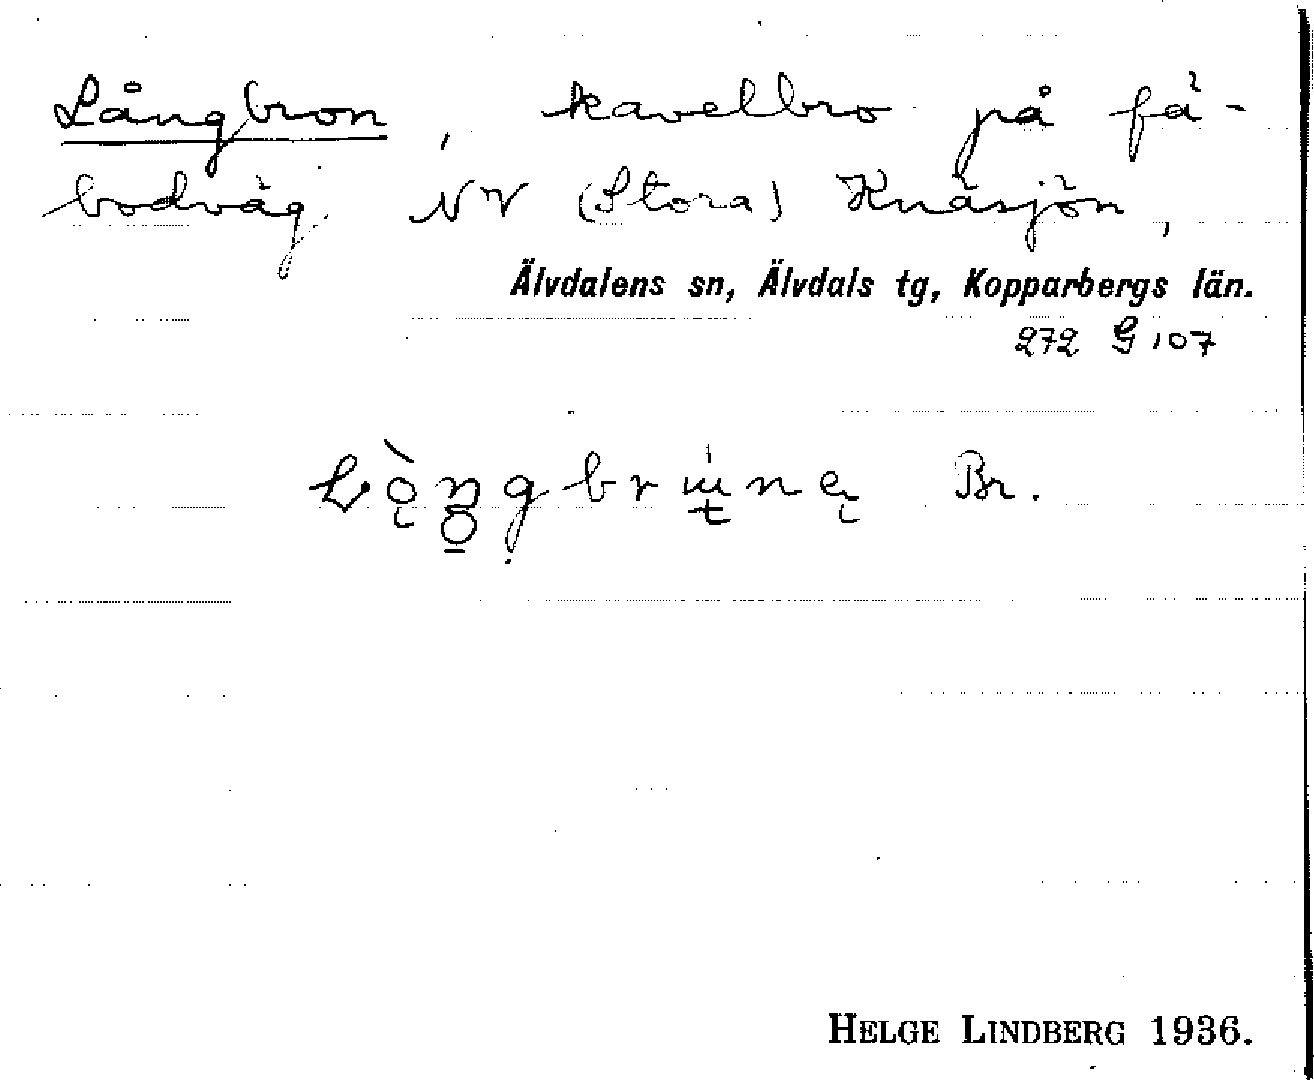 Långbron, kavelbro på fä-
bodväg NV (Stora) Knäsjön,
Älvdalens sn, Älvdals tg, Kopparbergs län.
272 G 107
Br.
HELGE LINDBERG 1936.